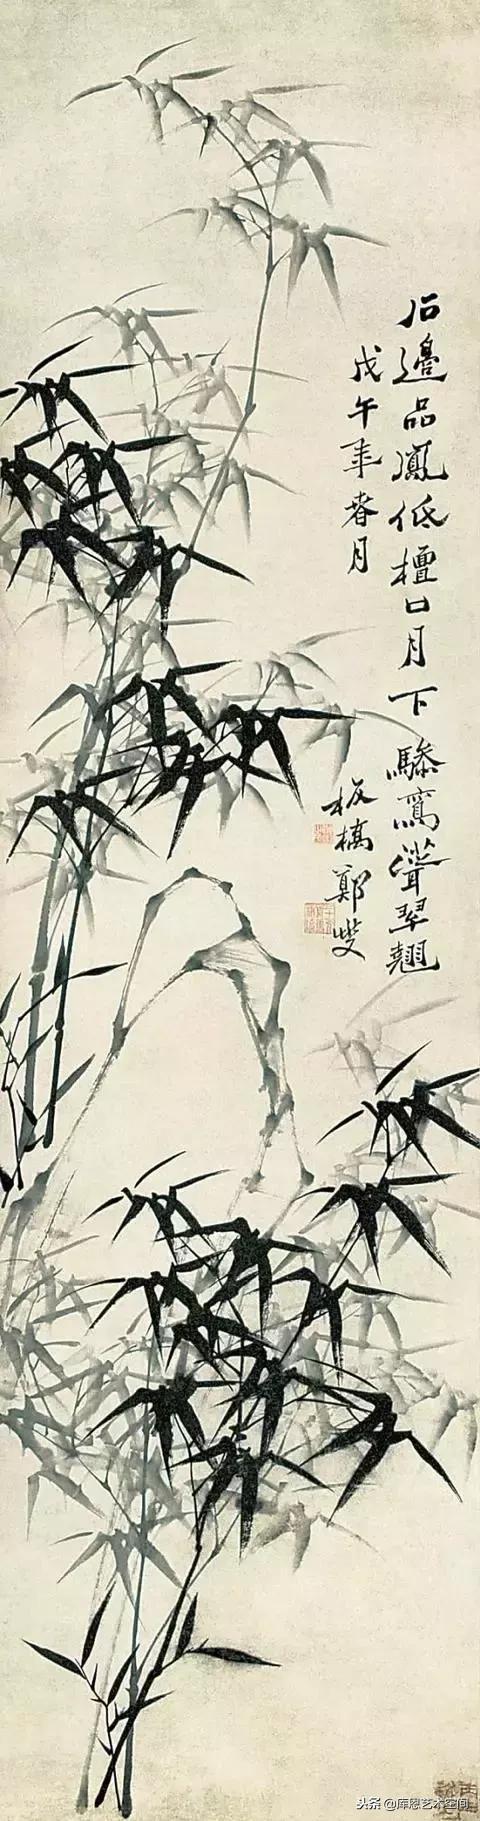 石邊品鳳低檀口月下驂鸞聳翠翹
戊午年春月
板橋鄭燮
头条 @库恩艺术空间